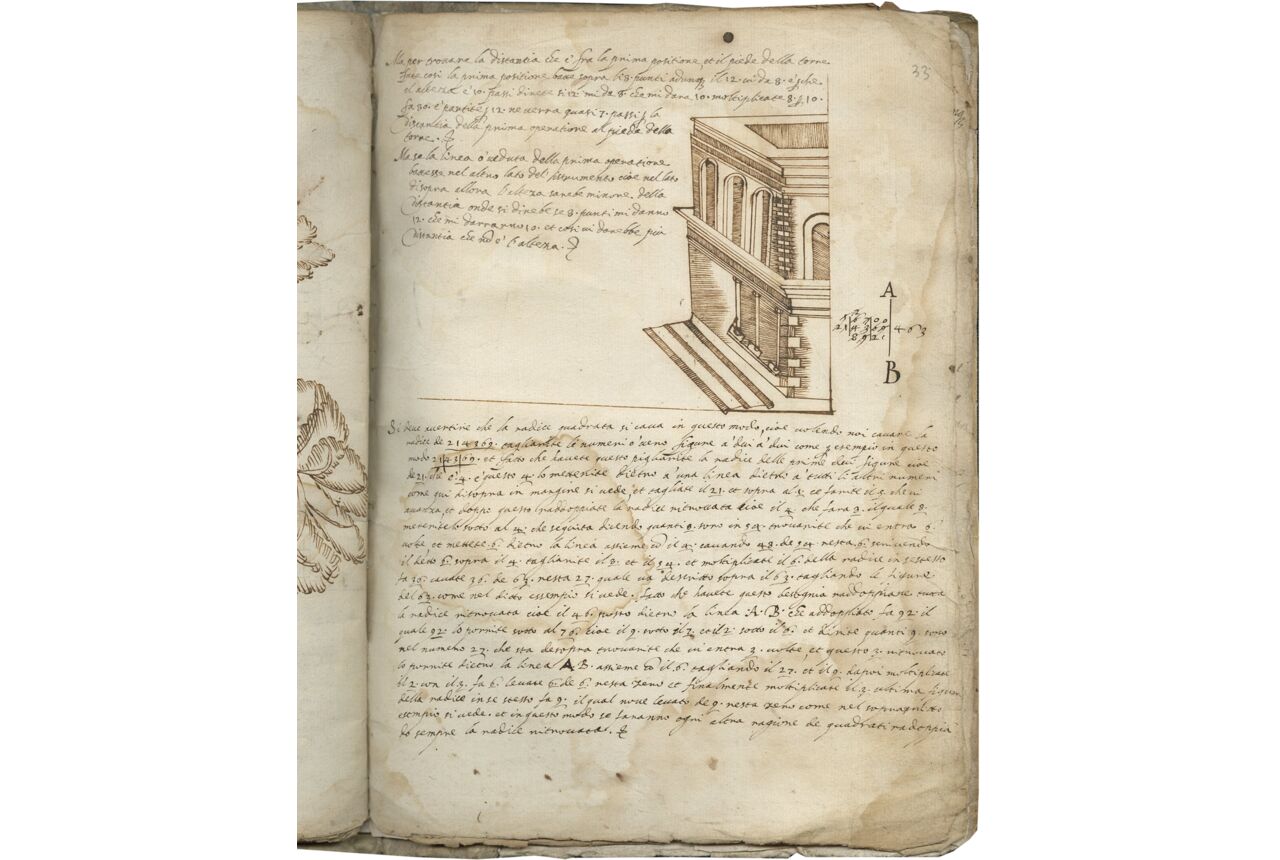 33
Ma per trovare la distantia che è fra la prima positione et il piede della torre
fate cosi la prima positione batte sopra li 8. punti il 12. mi da 8. che
10. passi direte si 12. mi da 8. che mi dara 10. moltiplicate 8. 10.
fa 80. è partite 12. ne verra quasi 7. passi la
distantia della prima operatione al piede della
torre.
Ma se la linea ò veduta della prima operatione
nel altro lato del cioe nel lato
disopra allora l'altezza sarebe minore della
distantia onde si direbe se 8. punti mi danno
12. che mi darranno 10. et cosi vi darebbe piu
distantia che nõ è l'altezza.
A
463
B
Si deve avertire che la radice quadrata si cava in questo modo, cioe volendo noi cavare la
radice de 214369. tagliarete li numeri ò vero figure à dui à dui come per esempio in questo
modo 21|43|69. et fatto che havete questo pigliarite la radice delle prime dui figure cioe
de 21. che è 4. è questo 4. lo metterite dietro à una linea dietro à tutti li altri numeri
come qui disopra in margine si vede, et tagliate il 21. et sopra al ce farite il 5. che vi
avanza, et doppo questo raddoppiate la radice ritrovata cioe il 4. che fara 8. il quale 8.
metterite lo sotto al 4. che seguita dicendo quanti 8. sono in 54. trovarite che vi entra 6.
volte et mettete 6. dietro la linea assieme cõ il 4. cavando 48. de 54. resta 6. scrivendo
il detto 6. sopra il 4. tagliarite il 8. et il 54. et moltiplicate il 6. della radice in se stesso
fa 36. cavate 36. de 63. resta 27. quale va descritto sopra il 63. tagliando le figure
del 63. come nel ditto essempio si vede. fatto che havete questo bisognia raddoppiare tutta
la radice ritrovata cioe il 46. posto dietro la linea A. B. che addoppiato fa 92. il
quale 92. lo porrite sotto al 76. cioe il 9. sotto il 7. et il 2. sotto il 6. et dirite quanti 9. sono
nel numero 27. che sta desopra trovarite che vi entra 3. volte, et questo 3. ritrovato
lo porrite dietro la linea A B. assieme cõ il 6. tagliando il 27. et il 9. dapoi moltiplicate
il 2. con il 3. fa 6. levate 6. de 6. resta zero et finalmente moltiplicate il 3. ultima figura
della radice in se stesso fa 9. il qual nove levato de 9. resta zero come nel
esempio si vede. et in questo modo se faranno ogni altra ragione de quadrati radoppia
do sempre la radice ritrovata.